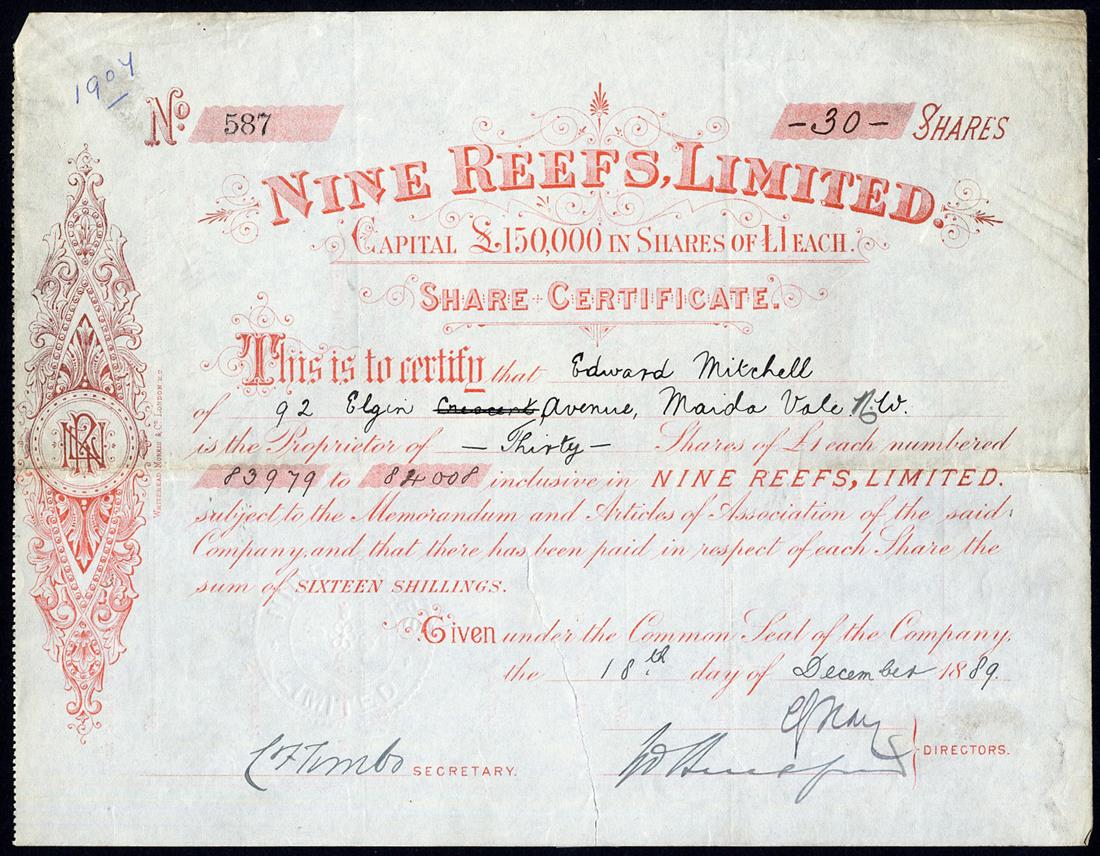 1904
No. 587
-30- SHARES
NINE REEFS, LIMITED.
CAPITAL £150,000 IN SHARES OF £1 EACH.
SHARE CERTIFICATE.
This is to certify that Edward Mitchell
of 92 Elgin Crescent, Avenue, Maida Vale N.W.
is the Proprietor of — Thirty — Shares of £1 each numbered
83979 to 84008 inclusive in NINE REEFS, LIMITED.
subject to the Memorandum and Articles of Association of the said
Company, and that there has been paid in respect of each Share the
sum of SIXTEEN SHILLINGS.
Given under the Common Seal of the Company,
the 18th day of December 1889.
DIRECTORS.
SECRETARY.
WHITEHEAD MORRIS & Co. LONDON E.C.
LIMITED